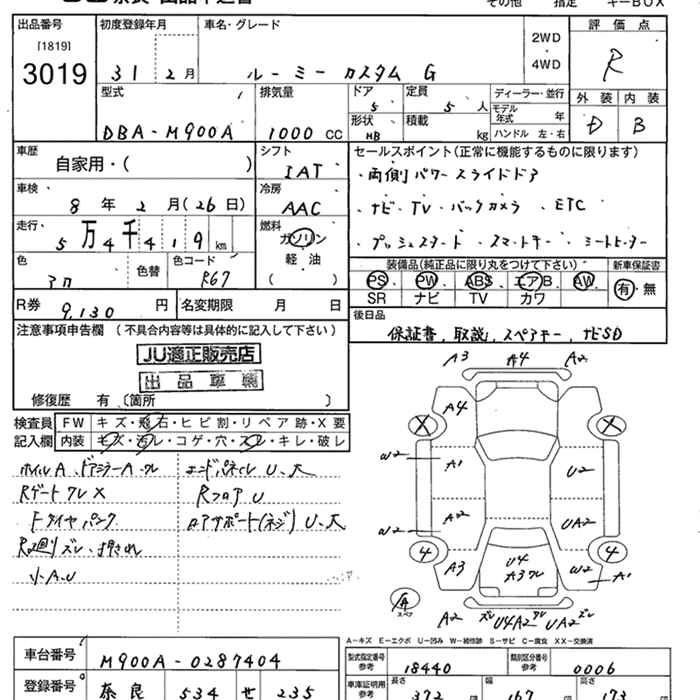 出品番号 初度登録年月 車名・グレード
[1819]
3019
31年2月 ルーミー カスタム G
2WD
・
4WD
評価点
R
型式 排気量 ドア 定員 ディーラー・並行 外装 内装
DBA-M900A 1000 CC 5 5人 モデル年式 年 D B
形状 HB 積載 kg ハンドル 左・右
車歴 シフト セールスポイント(正常に機能するものに限ります)
自家用・( ) IAT ・両側パワースライドドア
車検 冷房
8年2月(26日) AAC ・ナビ・TV・バックカメラ ・ETC
走行 燃料
5万4千419km ガソリン ・プッシュスタート ・スマートキー ・シートヒーター
軽・油
( )
色 色替 カラーコード
R67
装備品(純正品に限り丸をつけて下さい) 新車保証書
PS PW ABS エアB AW 有・無
SR ナビ TV カワ
R券 9,130円 名変期限 月 日
後日品
保証書、取説、スペアキー、ナビSD
注意事項申告欄 (不具合内容等は具体的に記入して下さい)
JU適正販売店
出品車輌
修復歴 有 〔箇所 〕
検査員記入欄
FW キズ・飛石・ヒビ割・リペア跡・X要
内装 キズ・汚レ・コゲ・穴・スレ・キレ・破レ
ホイルA、ドアミラーA・ワレ エンドパネル U、大
Rゲート ワレX Rフロア U
Fタイヤパンク ロアサポート(ネジ) U、大
小A.U
A3 A4 A2
A4
X X
W2 A1 U2
W2 A2 UA2
4 4
A3 U4 A3ワレ W2 A1
スペア
A2 ズレ U4A2ワレ UA2ズレ
A-キズ E-エクボ U-凹み W-補修跡 S-サビ C-腐食 XX-交換済
車台番号 M900A-0287404
型式指定番号 参考 18440 類別区分番号 参考 0006
登録番号 奈良 534 せ 235
車庫証明用 参考 長さ 372 幅 167 高さ 173